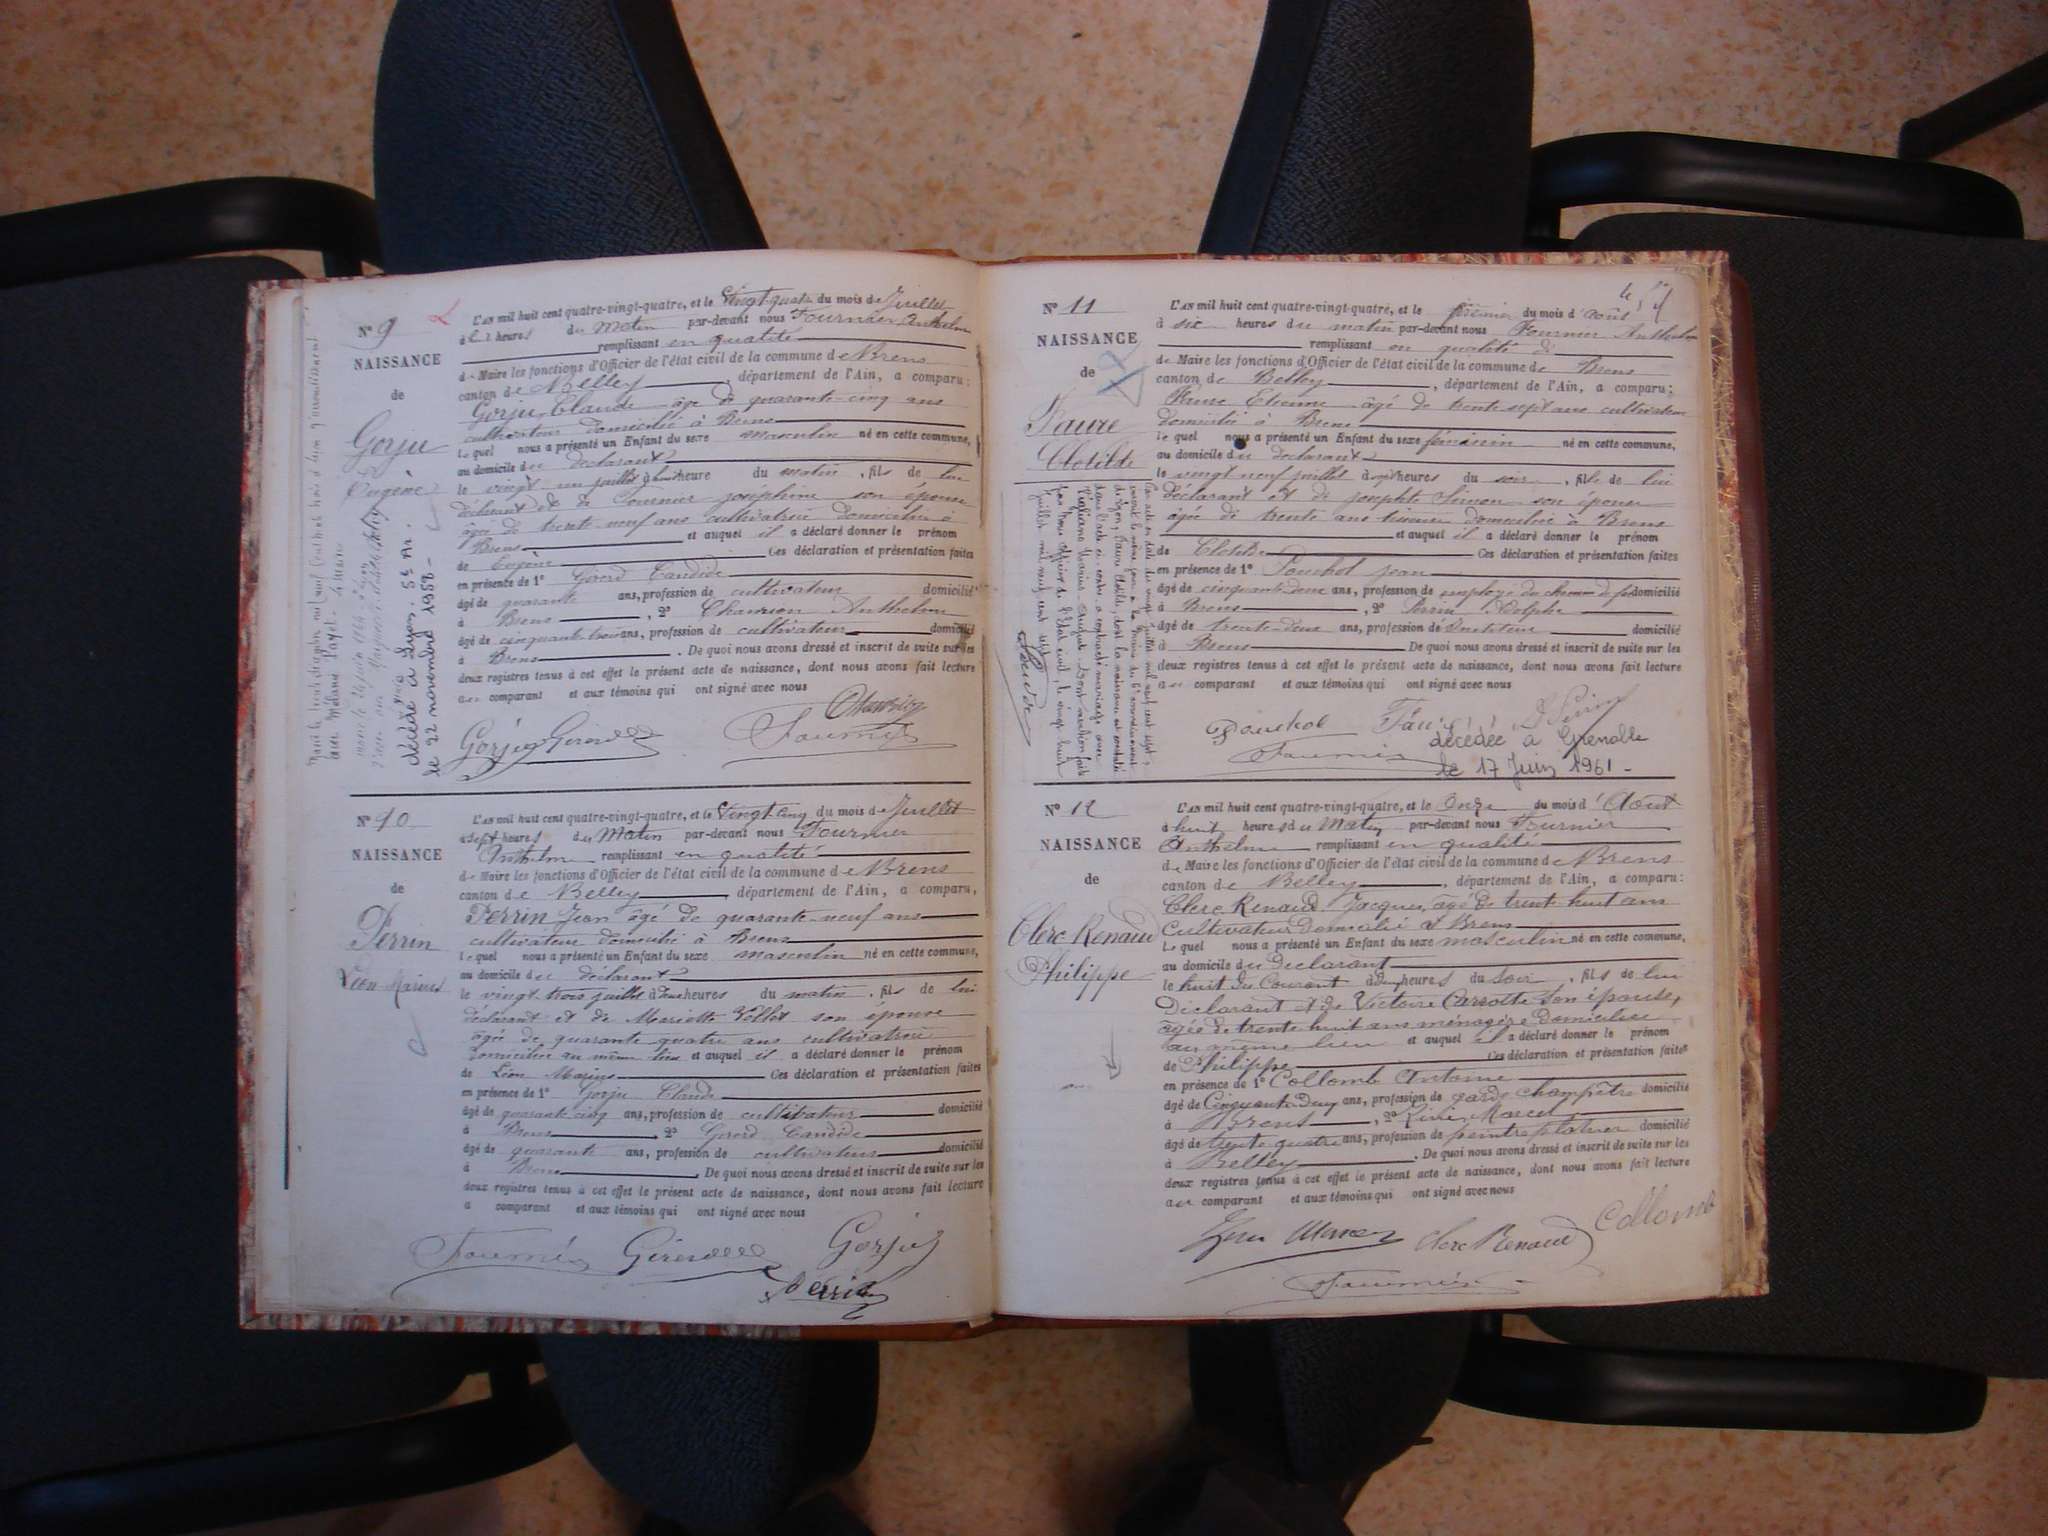 N° 9
NAISSANCE
de
Gorju
Eugène
décédé à Lyon. 5e Ar.
le 22 novembre 1958 -
L'AN mil huit cent quatre-vingt-quatre, et le Vingt quatre du mois de Juillet
à heures du Matin par-devant nous Fournier Anthelme
remplissant en qualité
de Maire les fonctions d'Officier de l'état civil de la commune de Brens
canton de Belley, département de l'Ain, a comparu:
Gorju Claude âgé de quarante-cinq ans
cultivateur domicilié à Brens
lequel nous a présenté un Enfant du sexe masculin né en cette commune,
au domicile du déclarant
le vingt un juillet à heure du matin, fils de lui
déclarant et de Fournier Joséphine son épouse
âgée de trente-neuf ans cultivatrice domiciliée à
Brens et auquel il a déclaré donner le prénom
de Eugène Ces déclaration et présentation faites
en présence de 1° Girerd Candide
âgé de quarante ans, profession de cultivateur domicilié
à Brens, 2° Anthelme
âgé de cinquante-trois ans, profession de cultivateur domicilié
à Brens. De quoi nous avons dressé et inscrit de suite sur les
deux registres tenus à cet effet le présent acte de naissance, dont nous avons fait lecture
au comparant et aux témoins qui ont signé avec nous
Gorju Girerd Fournier
N° 10
NAISSANCE
de
Perrin
Léon-Marius
L'AN mil huit cent quatre-vingt-quatre, et le Vingt cinq du mois de Juillet
à Sept heures du Matin par-devant nous Fournier
Anthelme remplissant en qualité
de Maire les fonctions d'Officier de l'état civil de la commune de Brens
canton de Belley, département de l'Ain, a comparu,
Perrin Jean âgé de quarante-neuf ans
cultivateur domicilié à Brens
lequel nous a présenté un Enfant du sexe masculin né en cette commune,
au domicile du déclarant
le vingt-trois juillet à heures du matin, fils de lui
déclarant et de Mariette Vollet son épouse
âgée de quarante quatre ans cultivatrice
domiciliée au même lieu et auquel il a déclaré donner le prénom
de Léon Marius Ces déclaration et présentation faites
en présence de 1° Gorju Claude
âgé de quarante-cinq ans, profession de cultivateur domicilié
à Brens, 2° Girerd Candide
âgé de quarante ans, profession de cultivateur domicilié
à Brens. De quoi nous avons dressé et inscrit de suite sur les
deux registres tenus à cet effet le présent acte de naissance, dont nous avons fait lecture
a comparant et aux témoins qui ont signé avec nous
Fournier Girerd Gorju
Perrin
N° 11
NAISSANCE
de
Faure
Clotilde
L'AN mil huit cent quatre-vingt-quatre, et le premier du mois d'août
à six heures du matin par-devant nous Fournier Anthelme
remplissant en qualité de
de Maire les fonctions d'Officier de l'état civil de la commune de Brens
canton de Belley, département de l'Ain, a comparu;
Faure Etienne âgé de trente-sept ans cultivateur
domicilié à Brens
lequel nous a présenté un Enfant du sexe féminin né en cette commune,
au domicile du déclarant
le vingt-neuf juillet à sept heures du soir, fille de lui
déclarant et de Josephte Simon son épouse
âgée de trente ans domiciliée à Brens
et auquel il a déclaré donner le prénom
de Clotilde Ces déclaration et présentation faites
en présence de 1° Pouchol Jean
âgé de cinquante-deux ans, profession de employé du chemin de fer domicilié
à Brens, 2° Perrin Adolphe
âgé de trente-deux ans, profession d'Instituteur domicilié
à Brens De quoi nous avons dressé et inscrit de suite sur les
deux registres tenus à cet effet le présent acte de naissance, dont nous avons fait lecture
au comparant et aux témoins qui ont signé avec nous
Pouchol Faure Perrin
Fournier
décédée à Grenoble
le 17 Juin 1961 -
N° 12
NAISSANCE
de
Clerc Renaud
Philippe
L'AN mil huit cent quatre-vingt-quatre, et le Onze du mois d'Août
à huit heures du Matin par-devant nous Fournier
Anthelme remplissant en qualité
de Maire les fonctions d'Officier de l'état civil de la commune de Brens
canton de Belley, département de l'Ain, a comparu:
Clerc Renaud Jacques, âgé de trente huit ans
Cultivateur Domicilié à Brens
lequel nous a présenté un Enfant du sexe masculin né en cette commune,
au domicile du Déclarant
le huit du Courant à heures du Soir, fils de lui
Déclarant et de Victoire Carrotte son épouse,
âgée de trente huit ans ménagère domiciliée
au même lieu et auquel il a déclaré donner le prénom
de Philippe Ces déclaration et présentation faites
en présence de 1° Collomb Antoine
âgé de Cinquante Deux ans, profession de garde champêtre domicilié
à Brens, 2° Marcel
âgé de trente quatre ans, profession de peintre platrier domicilié
à Belley. De quoi nous avons dressé et inscrit de suite sur les
deux registres tenus à cet effet le présent acte de naissance, dont nous avons fait lecture
au comparant et aux témoins qui ont signé avec nous
Marcel Clerc Renaud Collomb
Fournier